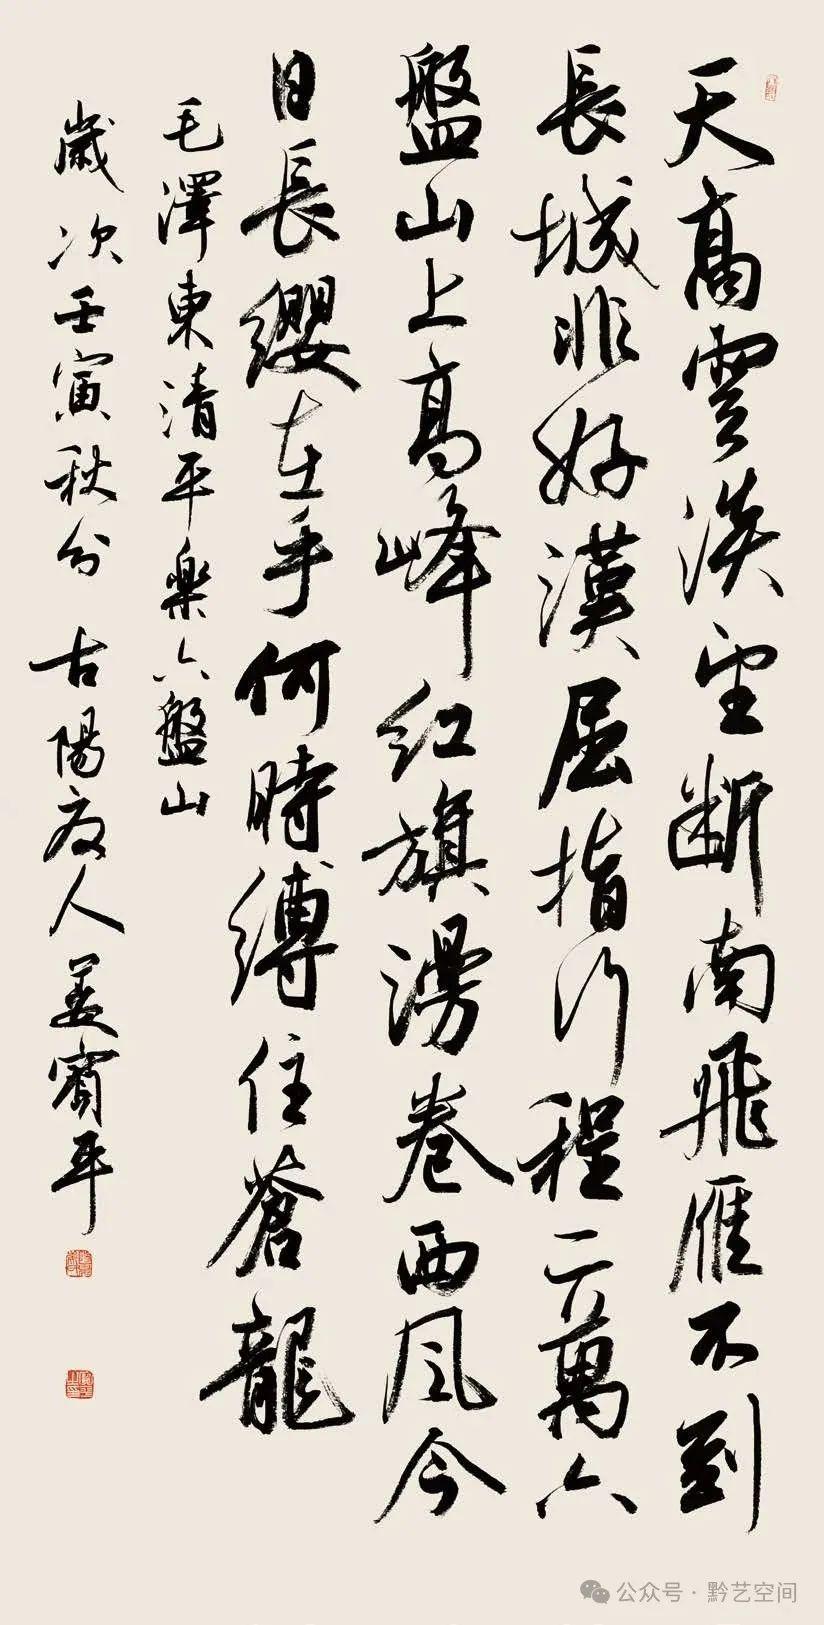 天高雲淡望斷南飛雁不到
長城非好漢屈指行程二萬六
盤山上高峰紅旗漫卷西風今
日長纓在手何時縛住蒼龍
毛澤東清平樂六盤山
歲次壬寅秋分 古陽人姜平
公众号·黔艺空间